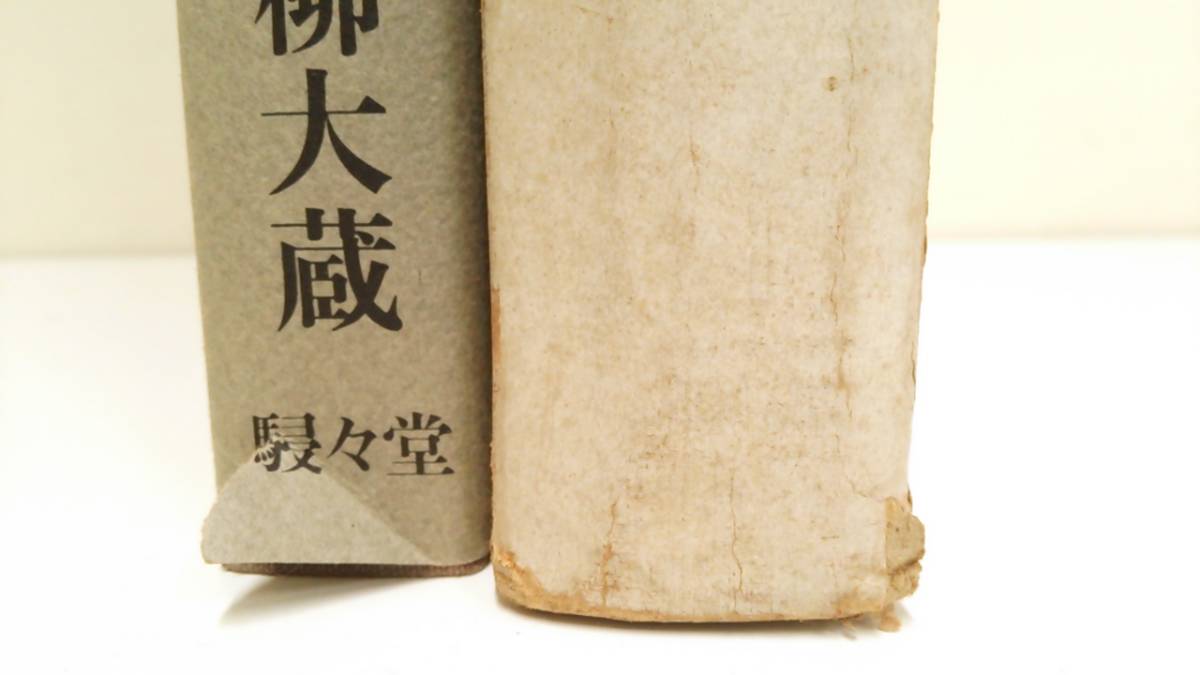 柳大蔵
駸々堂